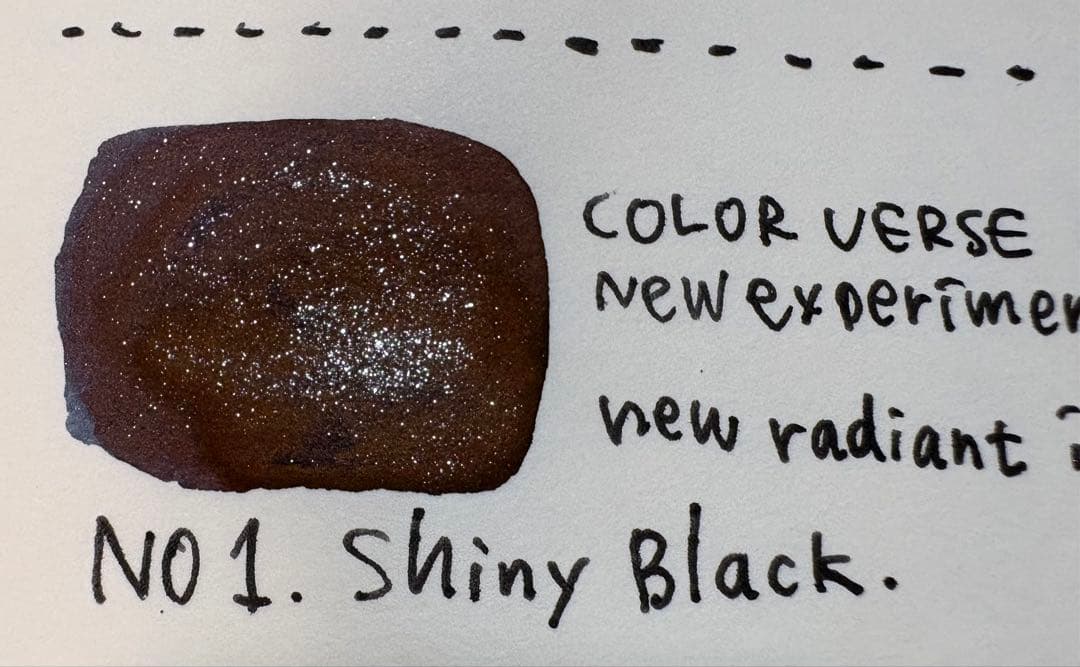 COLOR VERSE
New experimen
new radiant i
NO 1. Shiny Black.